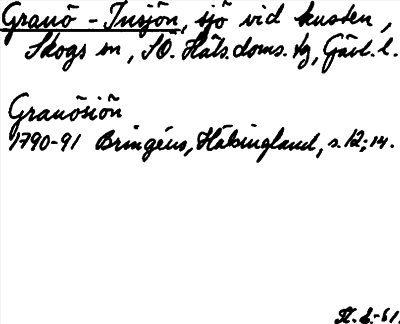 Granö - Insjön, sjö vid kusten,
Skogs sn, SO. Häls. doms. tg, Gävl. l.
Granösiön
1790-91 Bringéus, Hälsingland, s. 12; 14.